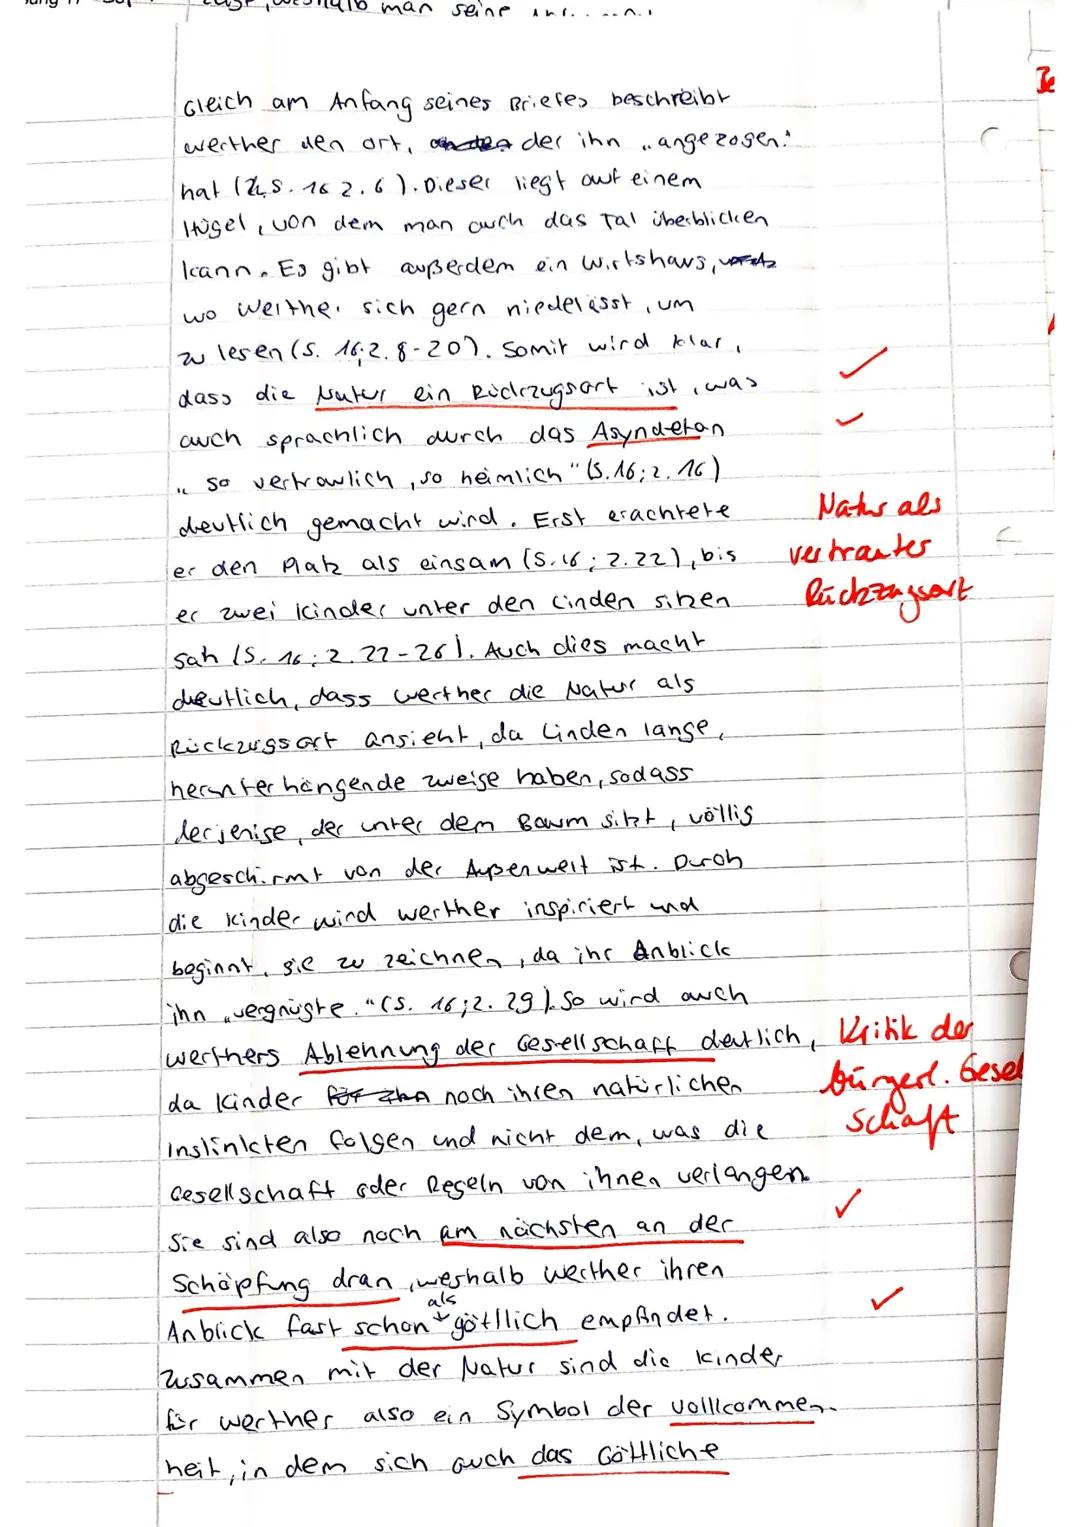 man seine
Gleich am Anfang seines Briefes beschreibt
Werther den Ort, der ihn „angezogen"
hat (Z4, S. 16 Z. 6). Dieser liegt auf einem
Hügel, von dem man auch das Tal überblicken
kann. Es gibt außerdem ein Wirtshaus,
wo Werther sich gern niederlässt, um
zu lesen (S. 16; Z. 8-20). Somit wird klar,
dass die Natur ein Rückzugsort ist, was
auch sprachlich durch das Asyndeton
„so vertraulich, so heimlich" (S. 16; Z. 16)
deutlich gemacht wird. Erst erachtete
Natur als
er den Platz als einsam (S. 16; Z. 22), bis
vertrauter
er zwei Kinder unter den Linden sitzen
Rückzugsort
sah (S. 16; Z. 22-26). Auch dies macht
deutlich, dass Werther die Natur als
Rückzugsort ansieht, da Linden lange,
herunterhängende Zweige haben, sodass
derjenige, der unter dem Baum sitzt, völlig
abgeschirmt von der Außenwelt ist. Durch
die Kinder wird Werther inspiriert und
beginnt, sie zu zeichnen, da ihr Anblick
ihn „vergnügte." (S. 16; Z. 29). So wird auch
Werthers Ablehnung der Gesellschaft deutlich,
Kritik der
da Kinder noch ihren natürlichen
bürgerl. Gesel
Instinkten folgen und nicht dem, was die
schaft
Gesellschaft oder Regeln von ihnen verlangen.
Sie sind also noch am nächsten an der
Schöpfung dran, weshalb Werther ihren
als
Anblick fast schon göttlich empfindet.
Zusammen mit der Natur sind die Kinder
für Werther also ein Symbol der Vollkommen-
heit, in dem sich auch das Göttliche